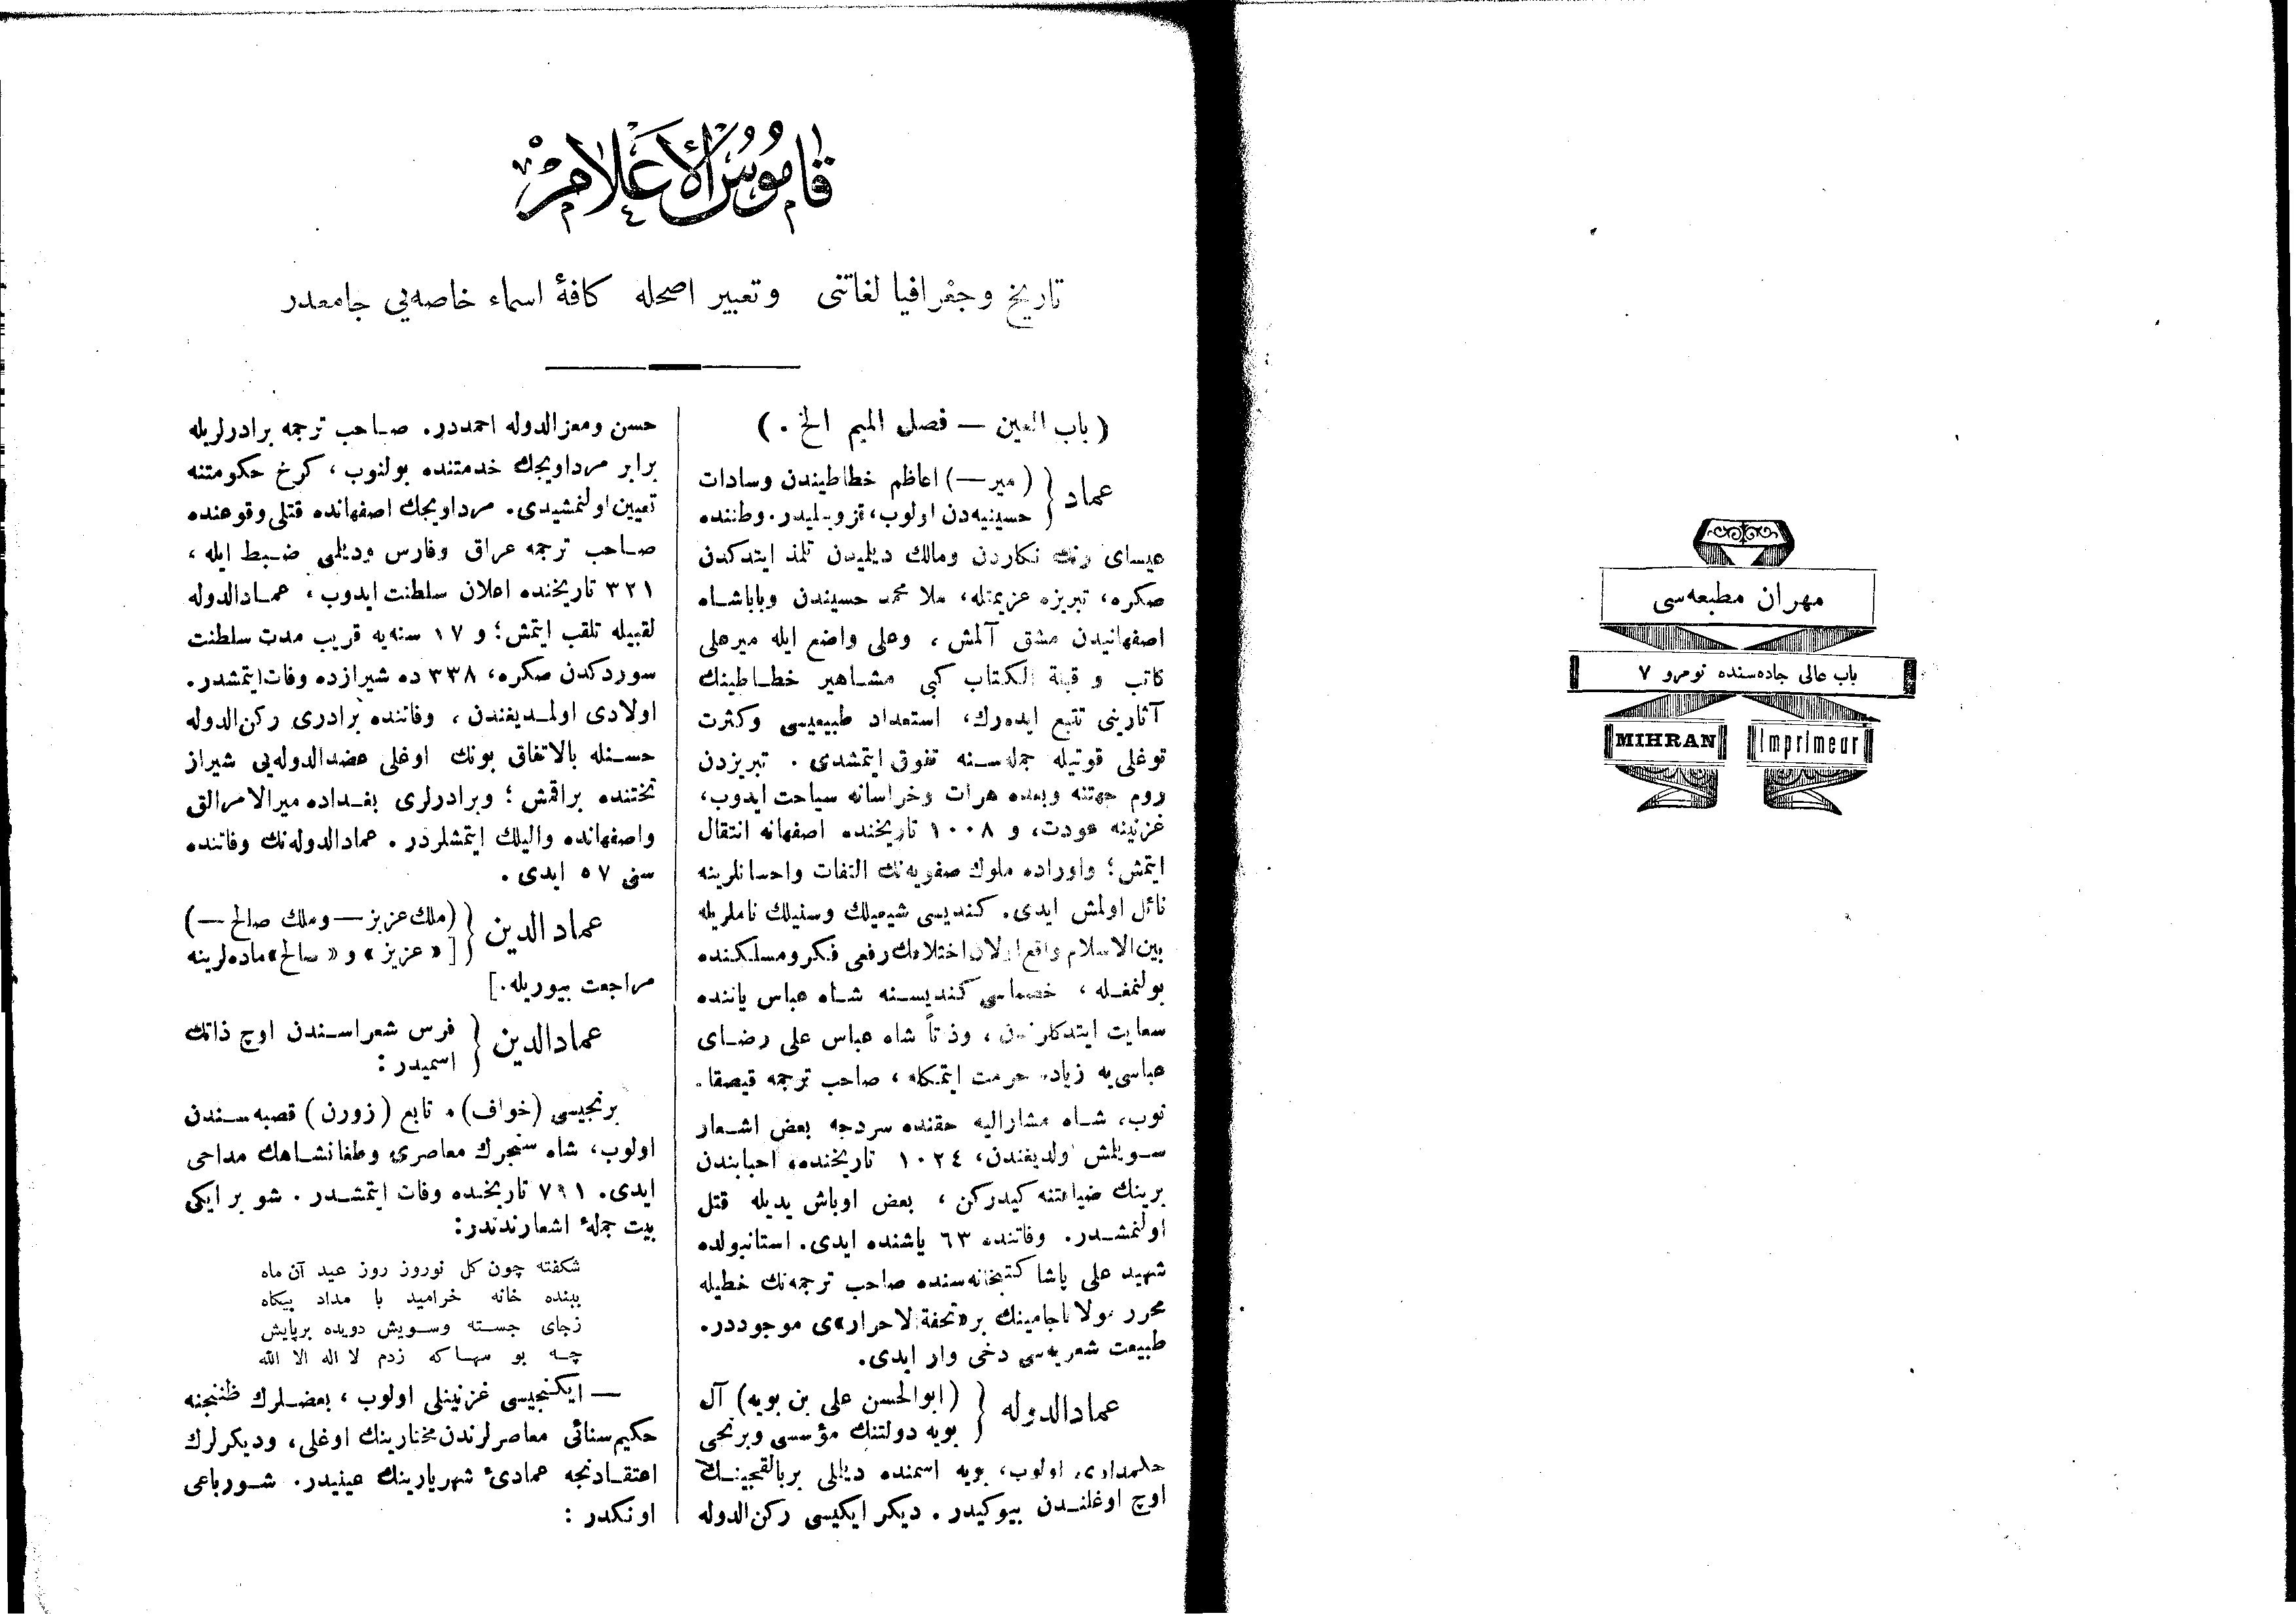 مهران مطبعه‌سی
باب عالی جاده‌سنده نومرو ٧
MIHRAN Imprimeur
قاموس الأعلام
تاریخ وجغرافیا لغاتنی وتعبیر اصحله کافهٔ اسماء خاصه‌یی جامعدر
(باب العین — فصل المیم الخ .)
عماد } (میر —) اعاظم خطاطیندن وسادات
حسینیه‌دن اولوب، قزوینلیدر. وطننده
عیسای رنك نکاردن ومالك دیلمیدن تلمذ ایتدکدن
صکره، تبریزه عزیمتله، ملا محمد حسیندن وباباشاه
اصفهانیدن مشق آلمش ، وعلی واضع ایله میرعلی
کاتب و قبلة الکتاب کبی مشاهیر خطاطینك
آثارینی تتبع ایده‌رك، استعداد طبیعیسی وکثرت
توغلی قوتیله جمله‌سنه تفوق ایتمشدی . تبریزدن
روم جهتنه وبعده هرات وخراسانه سیاحت ایدوب،
قزنینه عودت، و ١٠٠٨ تاریخنده اصفهانه انتقال
ایتمش؛ واوراده ملوك صفویه‌نك التفات واحسانلرینه
نائل اولمش ایدی. کندیسی شیعیلك وسنیلك ناملریله
بین‌الاسلام واقع اولان اختلافك رفعی فکر ومسلکنده
بولنمغله ، خصماسی کندیسنه شاه عباس یاننده
سعایت ایتدکلرندن ، وذتاً شاه عباس علی رضای
عباسی‌یه زیاده حرمت ایتمکله ، صاحب ترجمه قیصقا-
نوب، شاه مشارالیه حقنده سردجه بعض اشعار
سویلمش ولدیغندن، ١٠٢٤ تاریخنده، احبابندن
برینك ضیافتنه کیدرکن ، بعض اوباش یدیله قتل
اولنمشدر. وفاتنده ٦٣ یاشنده ایدی. استانبولده
شهید علی پاشا کتبخانه‌سنده صاحب ترجمه‌نك خطیله
محرر مولانا جامینك بر «تحفةالاحرار»ی موجوددر.
طبیعت شعریه‌سی دخی وار ایدی.
عمادالدوله } (ابوالحسن علی بن بویه) آل
بویه دولتنك مؤسسی وبرنجی
حکمداری اولوب، بویه اسمنده دیلملی بر بالقجینك
اوچ اوغلندن بیوکیدر . دیکر ایکیسی رکن‌الدوله
حسن ومعزالدوله احمددر. صاحب ترجمه برادرلریله
برابر مرداویجك خدمتنده بولنوب ، کرخ حکومتنه
تعیین اولنمشیدی. مرداویجك اصفهانده قتلی وقوعنده
صاحب ترجمه عراق وفارس ودیلمی ضبط ایله ،
٣٢١ تاریخنده اعلان سلطنت ایدوب ، عمادالدوله
لقبیله تلقب ایتمش؛ و ١٧ سنه‌یه قریب مدت سلطنت
سوردکدن صکره، ٣٣٨ ده شیرازده وفات ایتمشدر.
اولادی اولمدیغندن ، وفاتنده برادری رکن‌الدوله
حسنله بالاتفاق بونك اوغلی عضدالدوله‌یی شیراز
تختنده براقمش ؛ وبرادرلری بغداده میرالامرالق
واصفهانده والیلك ایتمشلردر . عمادالدوله‌نك وفاتنده
سنی ٥٧ ایدی .
عمادالدین } (ملك عزیز — وملك صالح —)
[«عزیز» و «صالح» ماده‌لرینه
مراجعت بیوریله.]
عمادالدین } فرس شعراسندن اوچ ذاتك
اسمیدر :
برنجیسی (خواف)ه تابع (زورن) قصبه‌سندن
اولوب، شاه سنجرك معاصری وطغانشاهك مداحی
ایدی. ٧٩١ تاریخنده وفات ایتمشدر . شو بر ایکی
بیت جملهٔ اشعارندندر:
شکفته چون کل نوروز روز عید آن ماه
ببنده خانه خرامید با مداد پیکاه
زجای جسته وسویش دویده برپایش
چه بو سها که زدم لا اله الا الله
— ایکنجیسی غزنینلی اولوب ، بعضلرك ظننجه
حکیم سنائی معاصرلرندن مختارینك اوغلی، ودیکرلرك
اعتقادنجه عمادئ شهریارینك عینیدر. شورباعی
اونکدر :